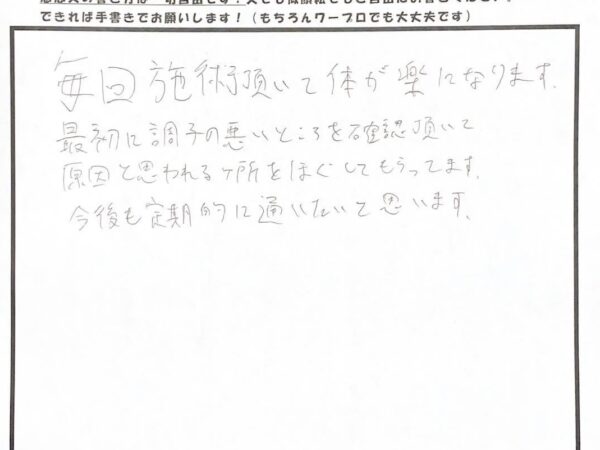 できれば手書きでお願いします！（もちろんワープロでも大丈夫です）
毎回施術頂いて体が楽になります.
最初に調子の悪いところを確認頂いて
原因と思われるヶ所をほぐしてもらってます.
今後も定期的に通いたいと思います.